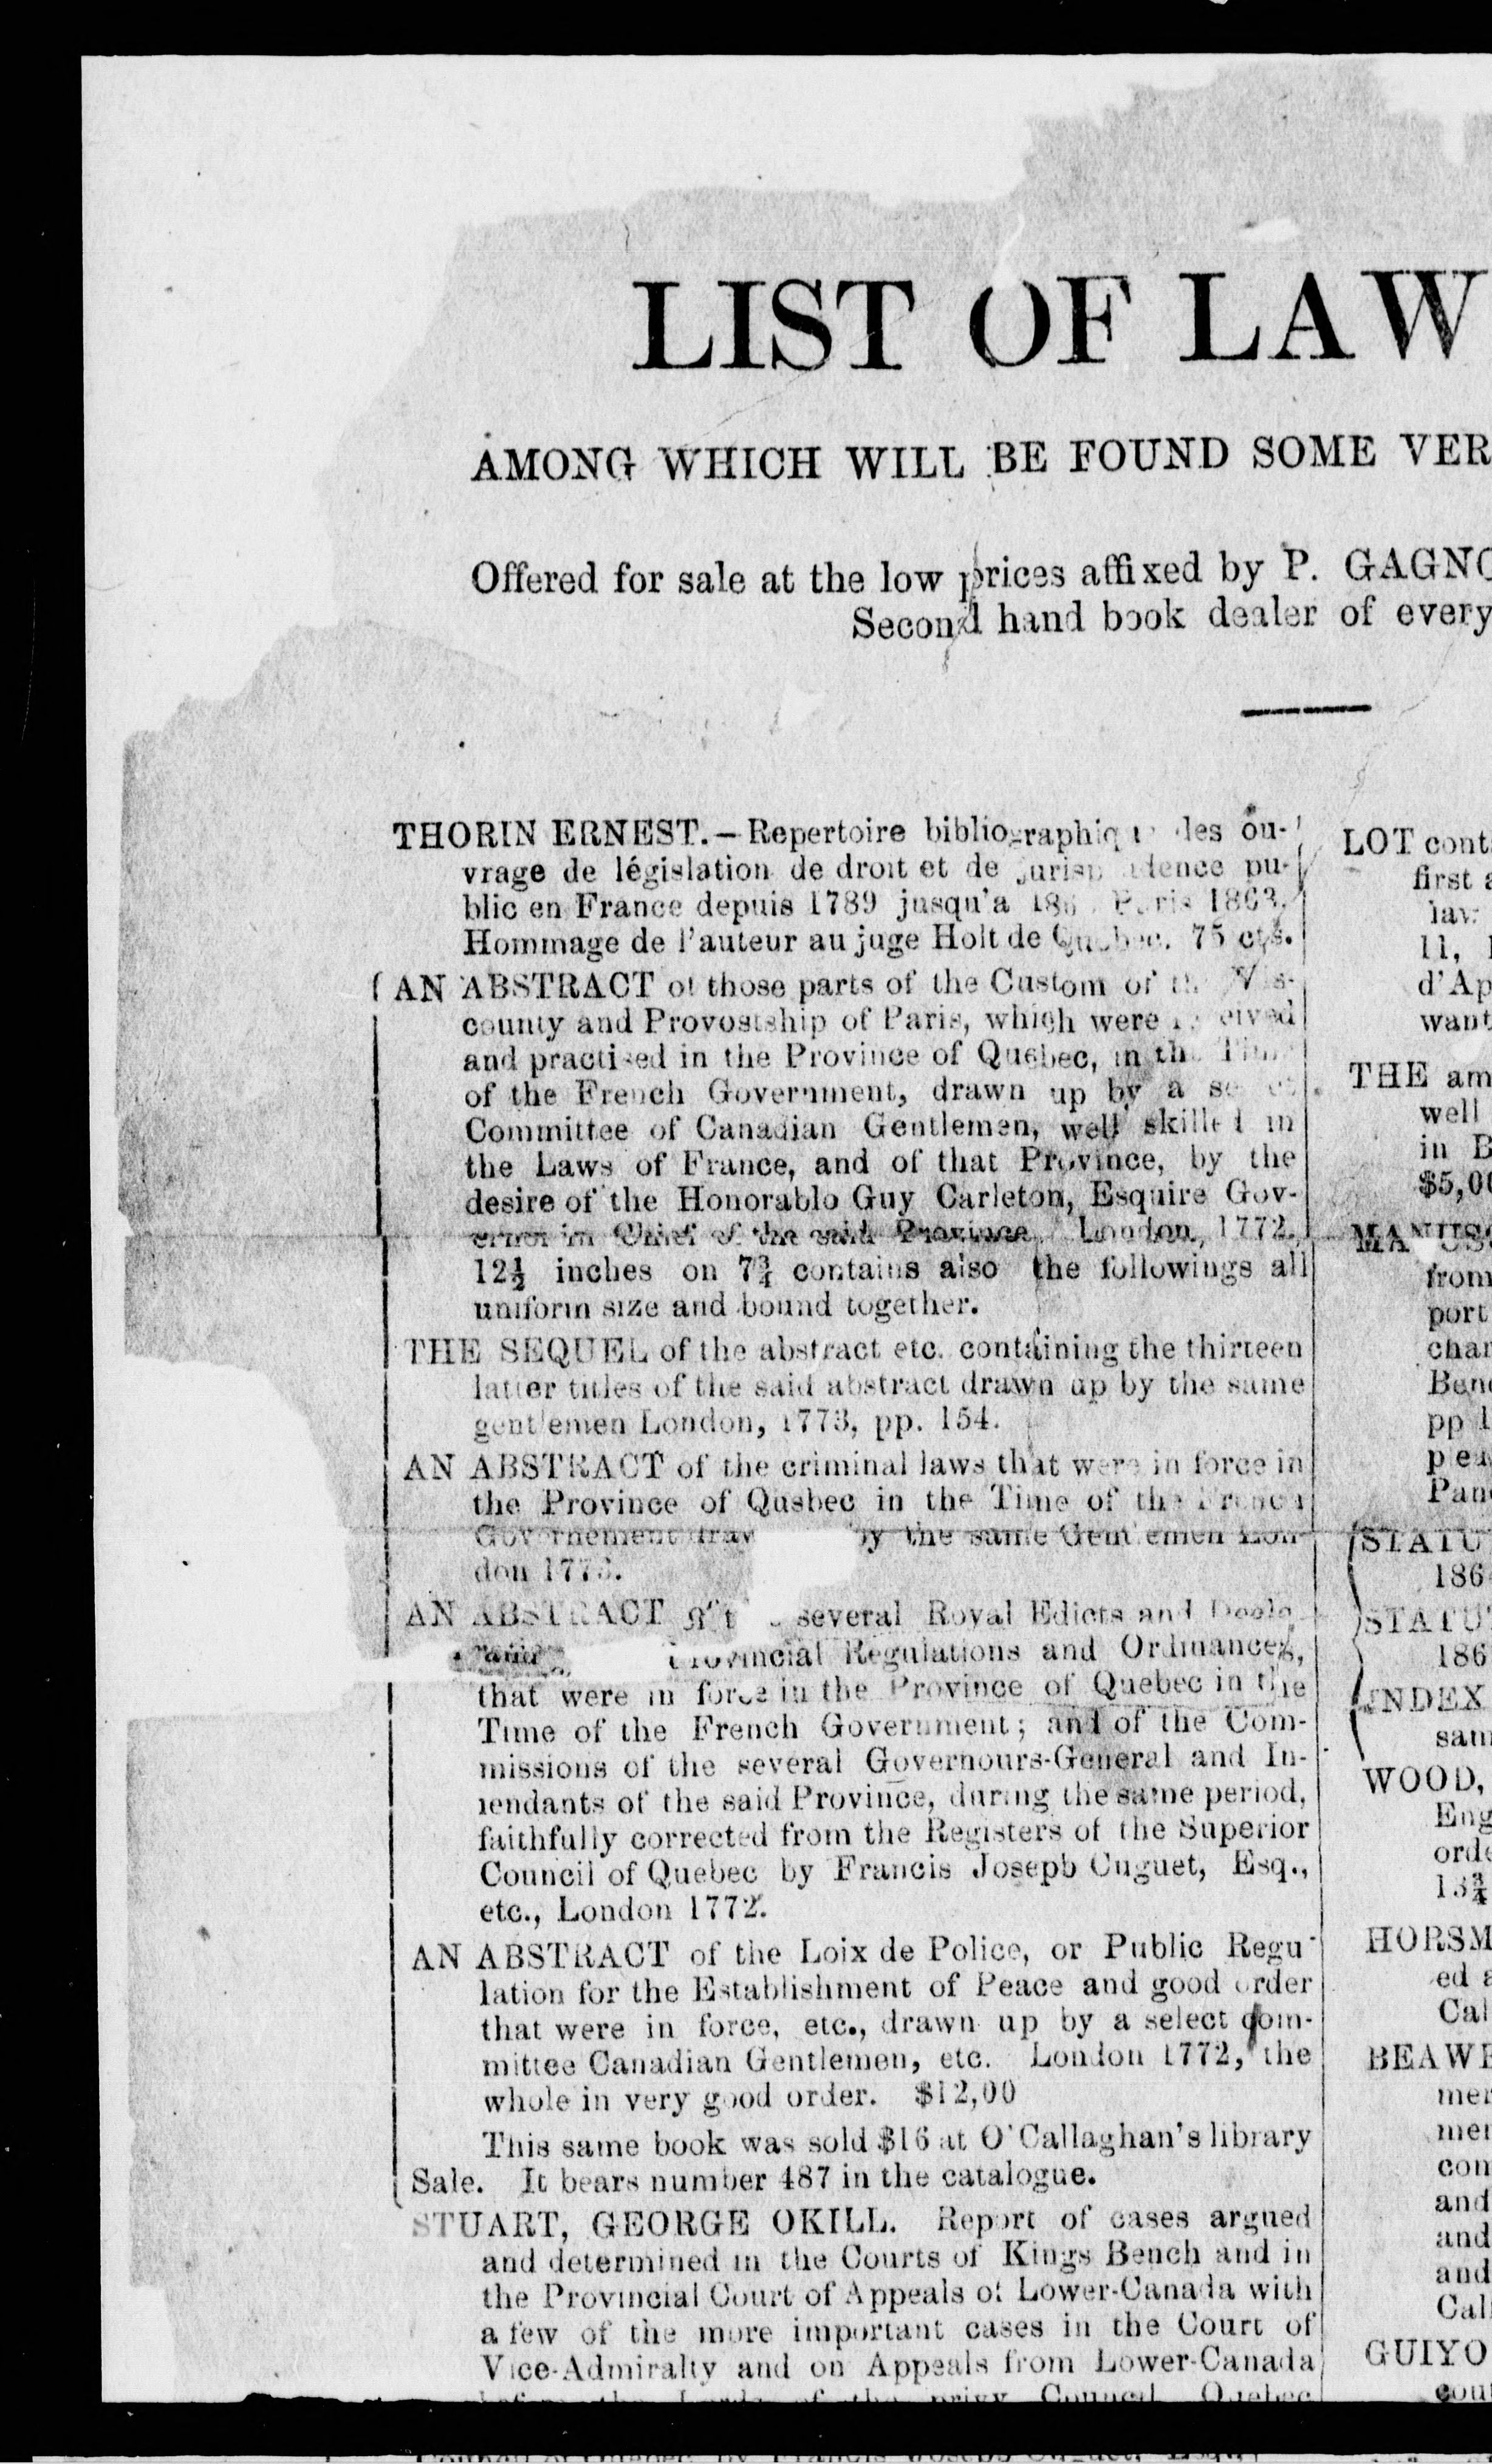 LIST OF LAW
AMONG WHICH WILL BE FOUND SOME VER
Offered for sale at the low prices affixed by P. GAGNO
Second hand book dealer of every
THORIN ERNEST.—Repertoire bibliographiq des ou-
vrage de législation de droit et de pu-
blic en France depuis 1789 jusqu'a Paris 1863.
Hommage de l'auteur au juge Holt de Quebec. 75 cts.
AN ABSTRACT of those parts of the Custom of Vis-
county and Provostship of Paris, which were
and practised in the Province of Quebec, in the Time
of the French Government, drawn up by a
Committee of Canadian Gentlemen, well skilled in
the Laws of France, and of that Province, by the
desire of the Honorablo Guy Carleton, Esquire Gov-
ernor in Chief of the said Province. London, 1772.
12½ inches on 7¾ contains also the followings all
uniform size and bound together.
THE SEQUEL of the abstract etc. containing the thirteen
latter titles of the said abstract drawn up by the same
gentlemen London, 1773, pp. 154.
AN ABSTRACT of the criminal laws that were in force in
the Province of Qusbec in the Time of the French
Governement by the same Gentlemen Lon-
don 1773.
AN ABSTRACT several Royal Edicts and
Provincial Regulations and Ordinances,
that were in force in the Province of Quebec in the
Time of the French Government; and of the Com-
missions of the several Governours-General and In-
tendants of the said Province, during the same period,
faithfully corrected from the Registers of the Superior
Council of Quebec by Francis Joseph Cuguet, Esq.,
etc., London 1772.
AN ABSTRACT of the Loix de Police, or Public Regu-
lation for the Establishment of Peace and good order
that were in force, etc., drawn up by a select com-
mittee Canadian Gentlemen, etc. London 1772, the
whole in very good order. $12,00
This same book was sold $16 at O'Callaghan's library
Sale. It bears number 487 in the catalogue.
STUART, GEORGE OKILL. Report of cases argued
and determined in the Courts of Kings Bench and in
the Provincial Court of Appeals of Lower-Canada with
a few of the more important cases in the Court of
Vice-Admiralty and on Appeals from Lower-Canada
before the Lords of the privy Council Quebec
LOT cont
first a
law
11, 1
d'Ap
want
THE am
well
in B
$5,00
MANUSC
from
port
char
Benc
pp 1
pea
Pan
STATU
186
STATU
186
INDEX
sam
WOOD,
Eng
orde
13¾
HORSM
ed a
Cal
BEAWE
mer
mer
con
and
and
and
Cal
GUIYO
cou